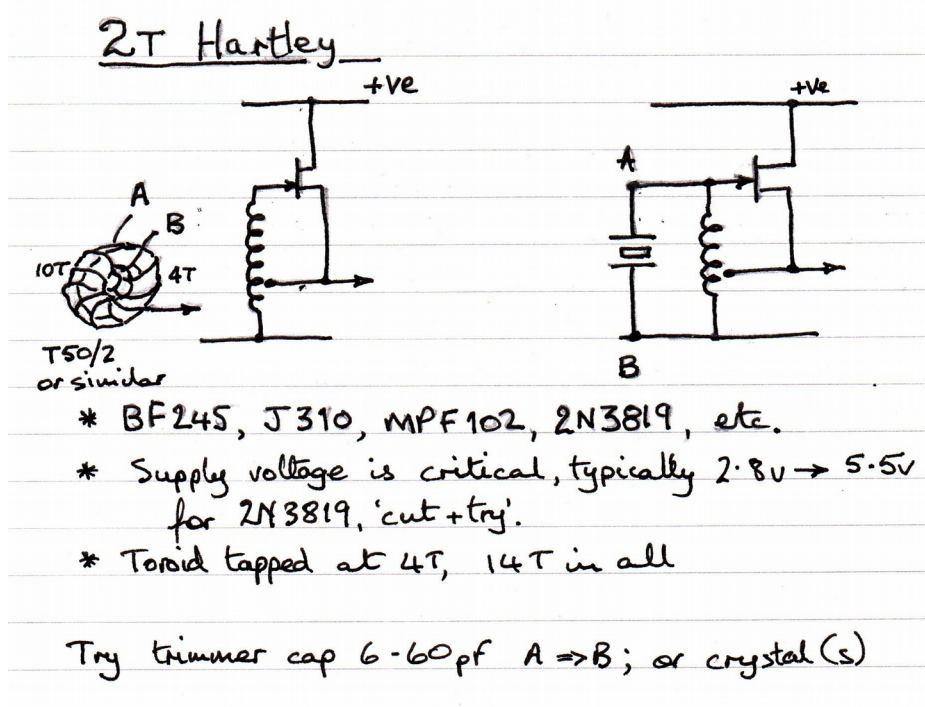 2T Hartley
+ve
+ve
A
A
B
10T
4T
T50/2
or similar
B
* BF245, J310, MPF102, 2N3819, etc.
* Supply voltage is critical, typically 2.8v → 5.5v
for 2N3819, 'cut + try'.
* Toroid tapped at 4T, 14T in all
Try trimmer cap 6-60pf A ⇒ B; or crystal(s)